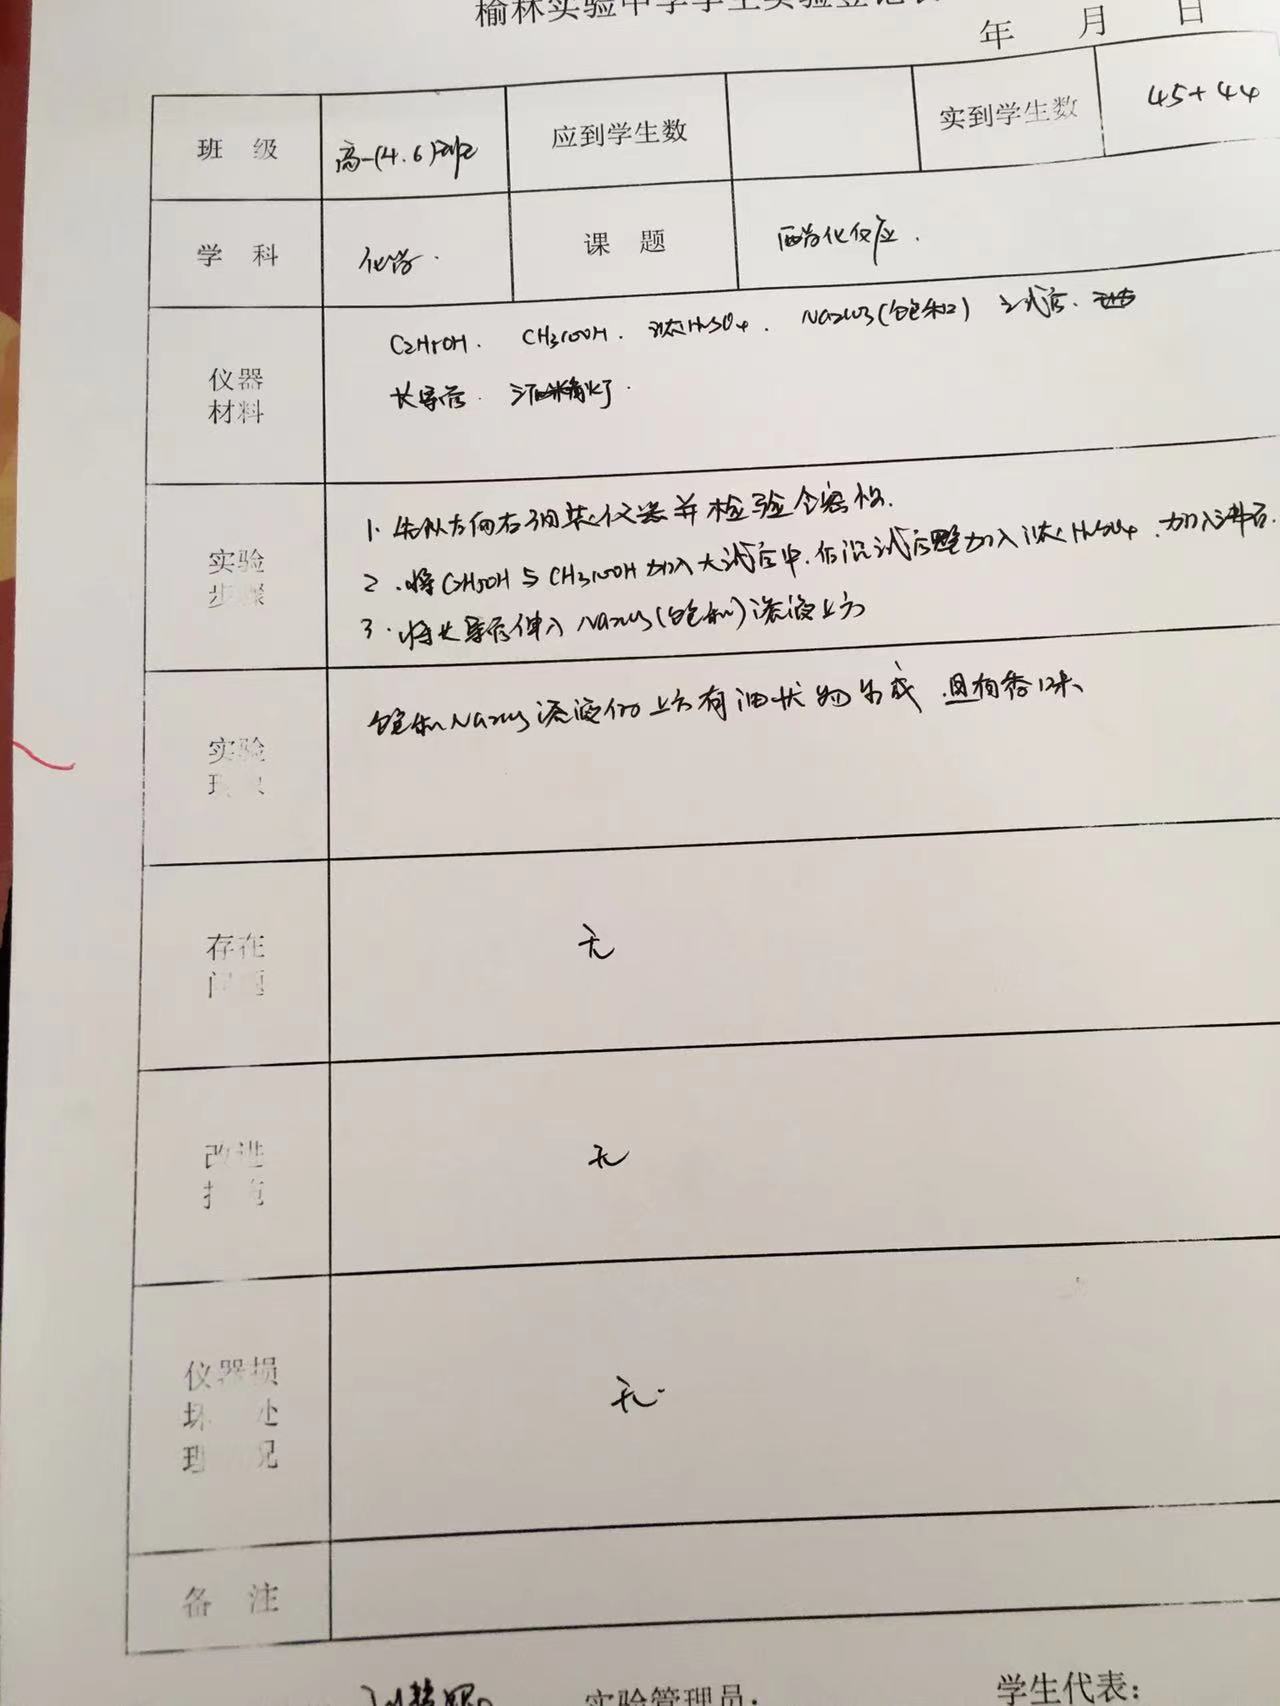 榆林实验中学学生实验登记表
年 月 日
班 级 高一(4.6)班 应到学生数 实到学生数 45+44
学 科 化学. 课 题 酯化反应.
仪器材料 C2H5OH. CH3COOH. 浓H2SO4. Na2CO3(饱和) 试管.
长导管. 酒精灯.
实验步骤 1. 先从左向右组装仪器并检验气密性.
2. 将C2H5OH与CH3COOH加入大试管中. 后沿试管壁加入浓H2SO4. 加入沸石.
3. 将长导管伸入Na2CO3(饱和)溶液上方
实验现象 饱和Na2CO3溶液的上方有油状物生成 且有香味
存在问题 无
改进措施 无
仪器损坏处理情况 无.
备 注
实验管理员: 学生代表: